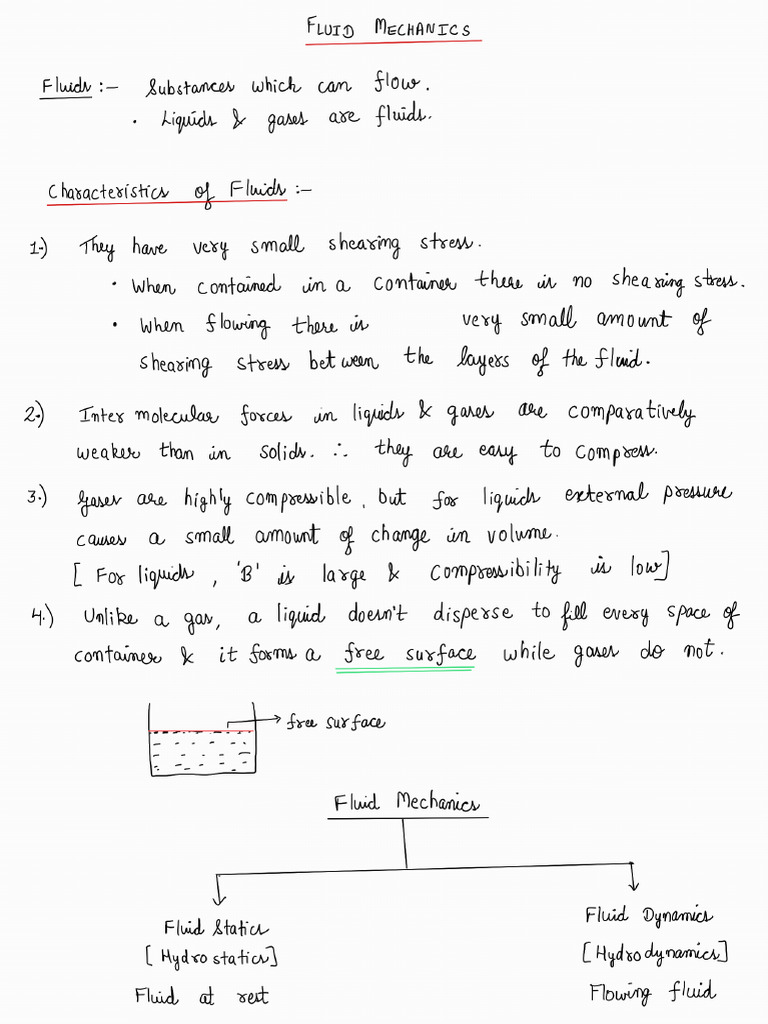 FLUID MECHANICS
Fluids :- Substances which can flow.
• Liquids & gases are fluids.
Characteristics of Fluids :-
1.) They have very small shearing stress.
• When contained in a container there is no shearing stress.
• When flowing there is very small amount of
shearing stress between the layers of the fluid.
2.) Inter molecular forces in liquids & gases are comparatively
weaker than in solids. ∴ they are easy to compress.
3.) Gases are highly compressible, but for liquids external pressure
causes a small amount of change in volume.
[ For liquids, 'B' is large & compressibility is low]
4.) Unlike a gas, a liquid doesn't disperse to fill every space of
container & it forms a free surface while gases do not.
free surface
Fluid Mechanics
Fluid Statics
[Hydrostatics]
Fluid at rest
Fluid Dynamics
[Hydrodynamics]
Flowing fluid